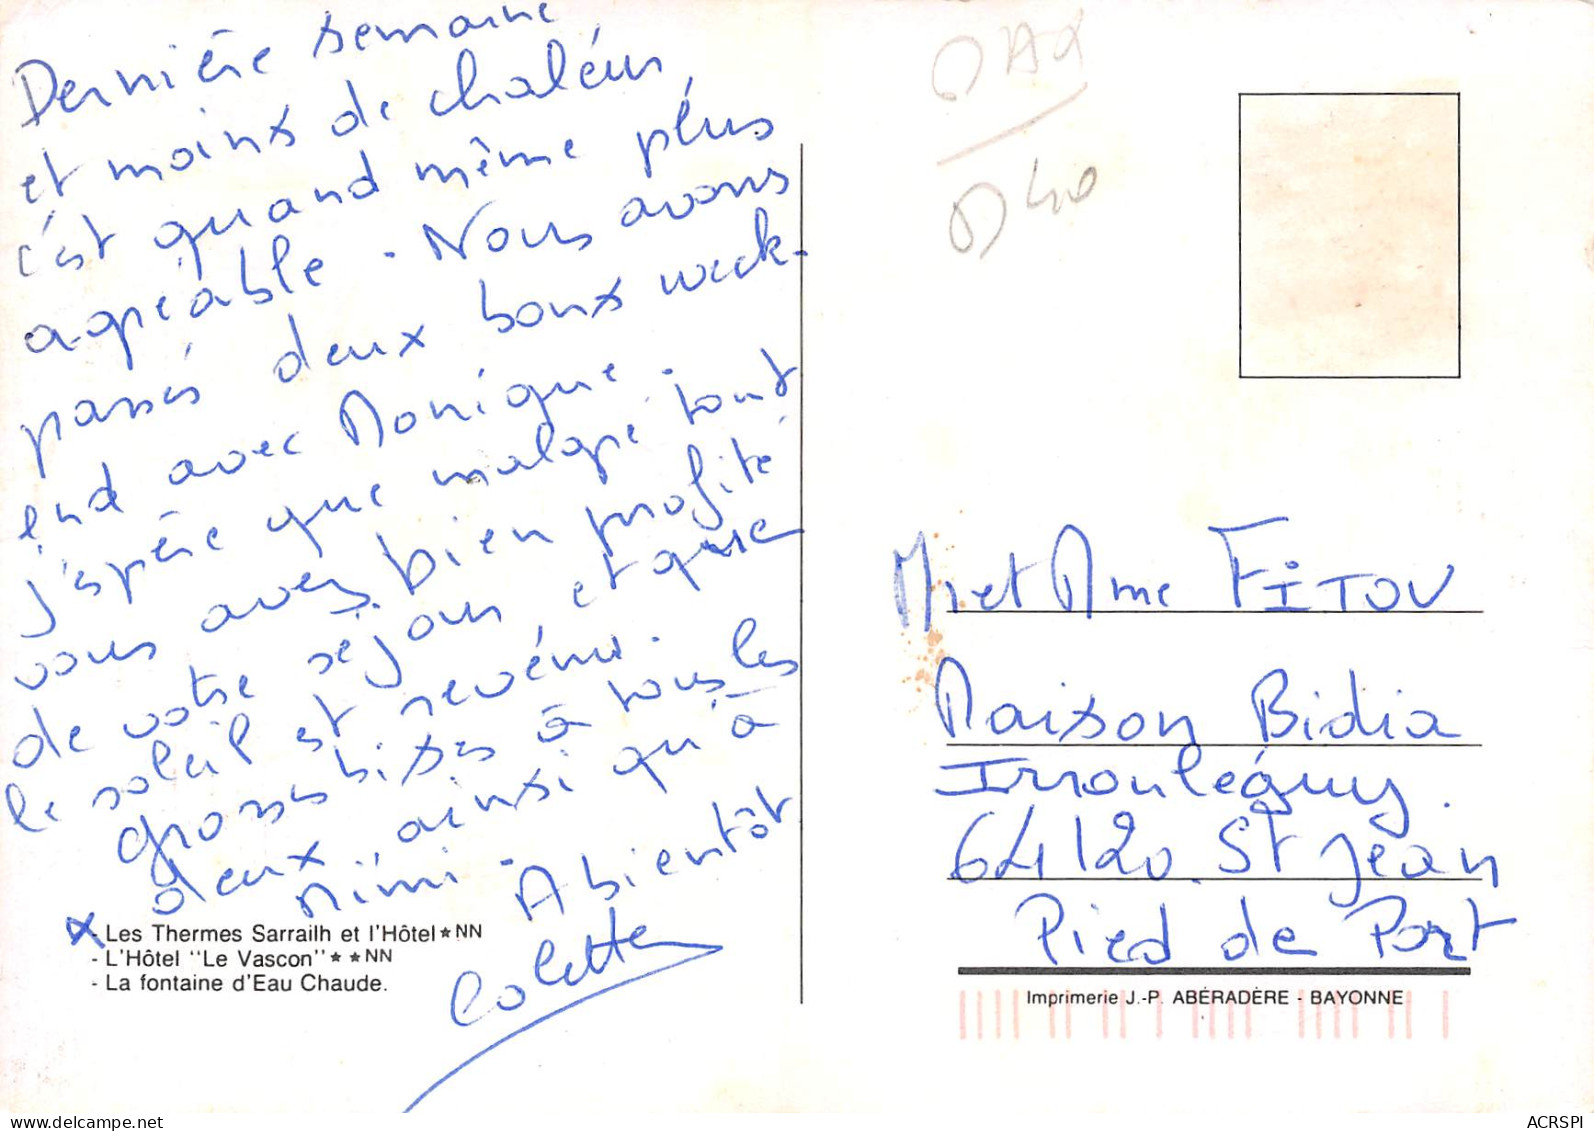 Dernière semaine
et moins de chaleur,
c'est quand même plus
agréable. Nous avons
passés deux bons week-
end avec Monique.
J'espère que malgré tout
vous avez bien profité
de votre séjour et que
le soleil est revenu.
grosses bises à tous les
deux ainsi qu'à
Mimi. A bientôt
Colette
- Les Thermes Sarrailh et l'Hôtel ★ NN
- L'Hôtel "Le Vascon" ★ ★ NN
- La fontaine d'Eau Chaude.
DAX
D40
M et Mme FITOU
Maison Bidia
Irrouléguy.
64120. St Jean
Pied de Port
Imprimerie J.-P. ABÉRADÈRE - BAYONNE
ACRSPI